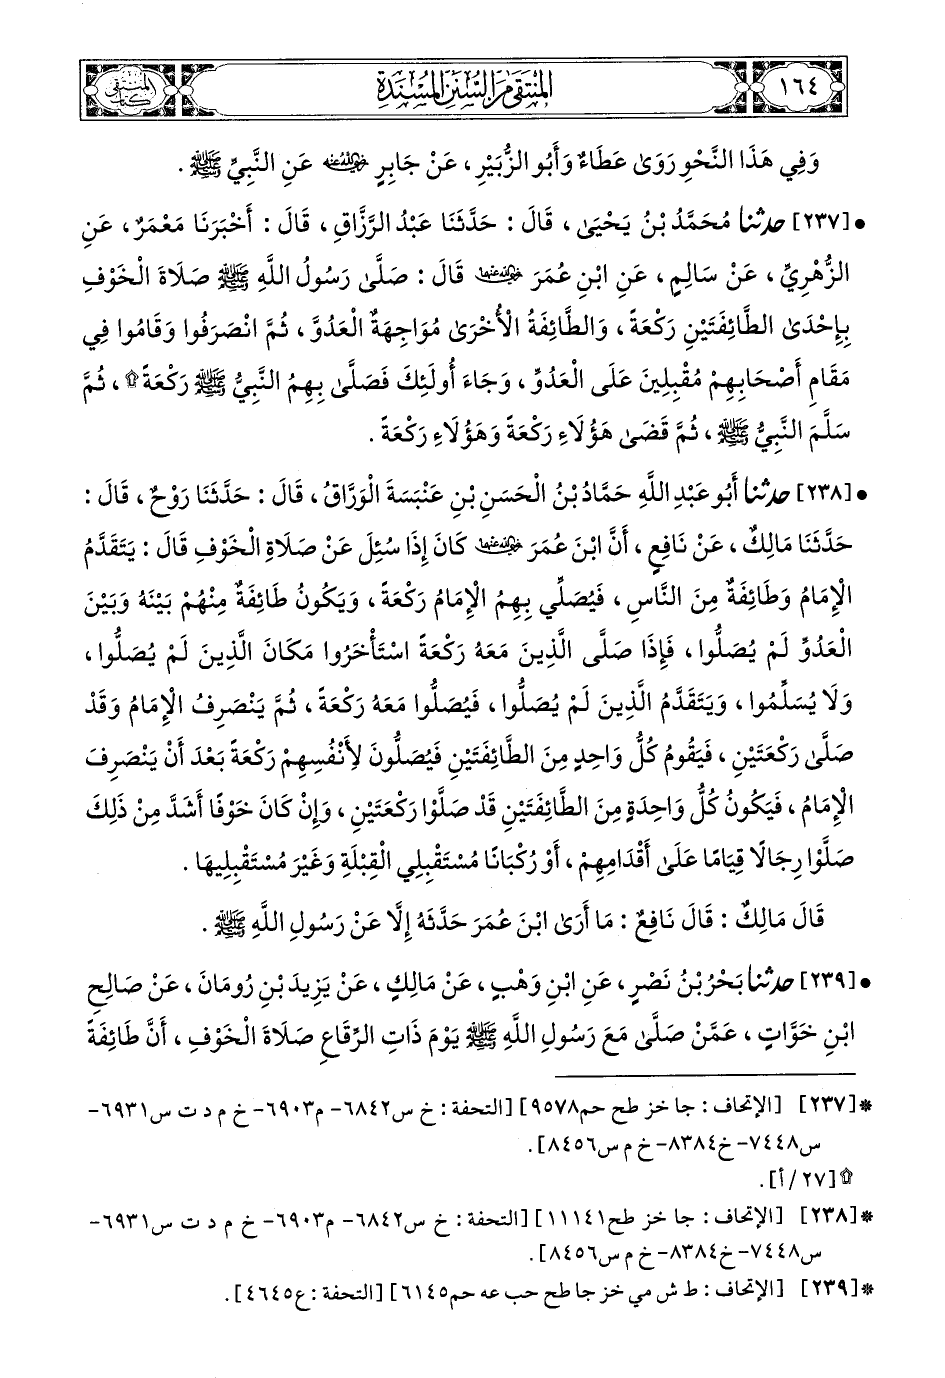 ١٦٤
المنتقى من السنن المسندة
كتاب المنتقى
وَفِي هَذَا النَّحْوِ رَوَىٰ عَطَاءٌ وَأَبُو الزُّبَيْرِ ، عَنْ جَابِرٍ رضي الله عنه عَنِ النَّبِيِّ ﷺ .
• [٢٣٧] حدثنا مُحَمَّدُ بْنُ يَحْيَىٰ ، قَالَ : حَدَّثَنَا عَبْدُ الرَّزَّاقِ ، قَالَ : أَخْبَرَنَا مَعْمَرٌ ، عَنِ
الزُّهْرِيِّ ، عَنْ سَالِمٍ ، عَنِ ابْنِ عُمَرَ رضي الله عنهما قَالَ : صَلَّىٰ رَسُولُ اللَّهِ ﷺ صَلَاةَ الْخَوْفِ
بِإِحْدَىٰ الطَّائِفَتَيْنِ رَكْعَةً ، وَالطَّائِفَةُ الْأُخْرَىٰ مُوَاجِهَةُ الْعَدُوِّ ، ثُمَّ انْصَرَفُوا وَقَامُوا فِي
مَقَامِ أَصْحَابِهِمْ مُقْبِلِينَ عَلَى الْعَدُوِّ ، وَجَاءَ أُولَئِكَ فَصَلَّىٰ بِهِمُ النَّبِيُّ ﷺ رَكْعَةً ۩ ، ثُمَّ
سَلَّمَ النَّبِيُّ ﷺ ، ثُمَّ قَضَىٰ هَؤُلَاءِ رَكْعَةً وَهَؤُلَاءِ رَكْعَةً .
• [٢٣٨] حدثنا أَبُو عَبْدِ اللَّهِ حَمَّادُ بْنُ الْحَسَنِ بْنِ عَنْبَسَةَ الْوَرَّاقُ ، قَالَ : حَدَّثَنَا رَوْحٌ ، قَالَ :
حَدَّثَنَا مَالِكٌ ، عَنْ نَافِعٍ ، أَنَّ ابْنَ عُمَرَ رضي الله عنهما كَانَ إِذَا سُئِلَ عَنْ صَلَاةِ الْخَوْفِ قَالَ : يَتَقَدَّمُ
الْإِمَامُ وَطَائِفَةٌ مِنَ النَّاسِ ، فَيُصَلِّي بِهِمُ الْإِمَامُ رَكْعَةً ، وَيَكُونُ طَائِفَةٌ مِنْهُمْ بَيْنَهُ وَبَيْنَ
الْعَدُوِّ لَمْ يُصَلُّوا ، فَإِذَا صَلَّى الَّذِينَ مَعَهُ رَكْعَةً اسْتَأْخَرُوا مَكَانَ الَّذِينَ لَمْ يُصَلُّوا ،
وَلَا يُسَلِّمُوا ، وَيَتَقَدَّمُ الَّذِينَ لَمْ يُصَلُّوا ، فَيُصَلُّوا مَعَهُ رَكْعَةً ، ثُمَّ يَنْصَرِفُ الْإِمَامُ وَقَدْ
صَلَّىٰ رَكْعَتَيْنِ ، فَيَقُومُ كُلُّ وَاحِدٍ مِنَ الطَّائِفَتَيْنِ فَيُصَلُّونَ لِأَنْفُسِهِمْ رَكْعَةً بَعْدَ أَنْ يَنْصَرِفَ
الْإِمَامُ ، فَيَكُونُ كُلُّ وَاحِدَةٍ مِنَ الطَّائِفَتَيْنِ قَدْ صَلَّوْا رَكْعَتَيْنِ ، وَإِنْ كَانَ خَوْفًا أَشَدَّ مِنْ ذَلِكَ
صَلَّوْا رِجَالًا قِيَامًا عَلَىٰ أَقْدَامِهِمْ ، أَوْ رُكْبَانًا مُسْتَقْبِلِي الْقِبْلَةِ وَغَيْرَ مُسْتَقْبِلِيهَا .
قَالَ مَالِكٌ : قَالَ نَافِعٌ : مَا أَرَىٰ ابْنَ عُمَرَ حَدَّثَهُ إِلَّا عَنْ رَسُولِ اللَّهِ ﷺ .
• [٢٣٩] حدثنا بَحْرُ بْنُ نَصْرٍ ، عَنِ ابْنِ وَهْبٍ ، عَنْ مَالِكٍ ، عَنْ يَزِيدَ بْنِ رُومَانَ ، عَنْ صَالِحِ
ابْنِ خَوَّاتٍ ، عَمَّنْ صَلَّىٰ مَعَ رَسُولِ اللَّهِ ﷺ يَوْمَ ذَاتِ الرِّقَاعِ صَلَاةَ الْخَوْفِ ، أَنَّ طَائِفَةً
* [٢٣٧] [الإتحاف : جا خز طح حم ٩٥٧٨] [التحفة : خ س ٦٨٤٢- م ٦٩٠٣- خ م د ت س ٦٩٣١-
س ٧٤٤٨- خ ٨٣٨٤- خ م س ٨٤٥٦] .
۩ [٢٧/ أ] .
* [٢٣٨] [الإتحاف : جا خز طح ١١١٤١] [التحفة : خ س ٦٨٤٢- م ٦٩٠٣- خ م د ت س ٦٩٣١-
س ٧٤٤٨- خ ٨٣٨٤- خ م س ٨٤٥٦] .
* [٢٣٩] [الإتحاف : ط ش مي خز جا طح حب عه حم ٦١٤٥] [التحفة : ع ٤٦٤٥] .